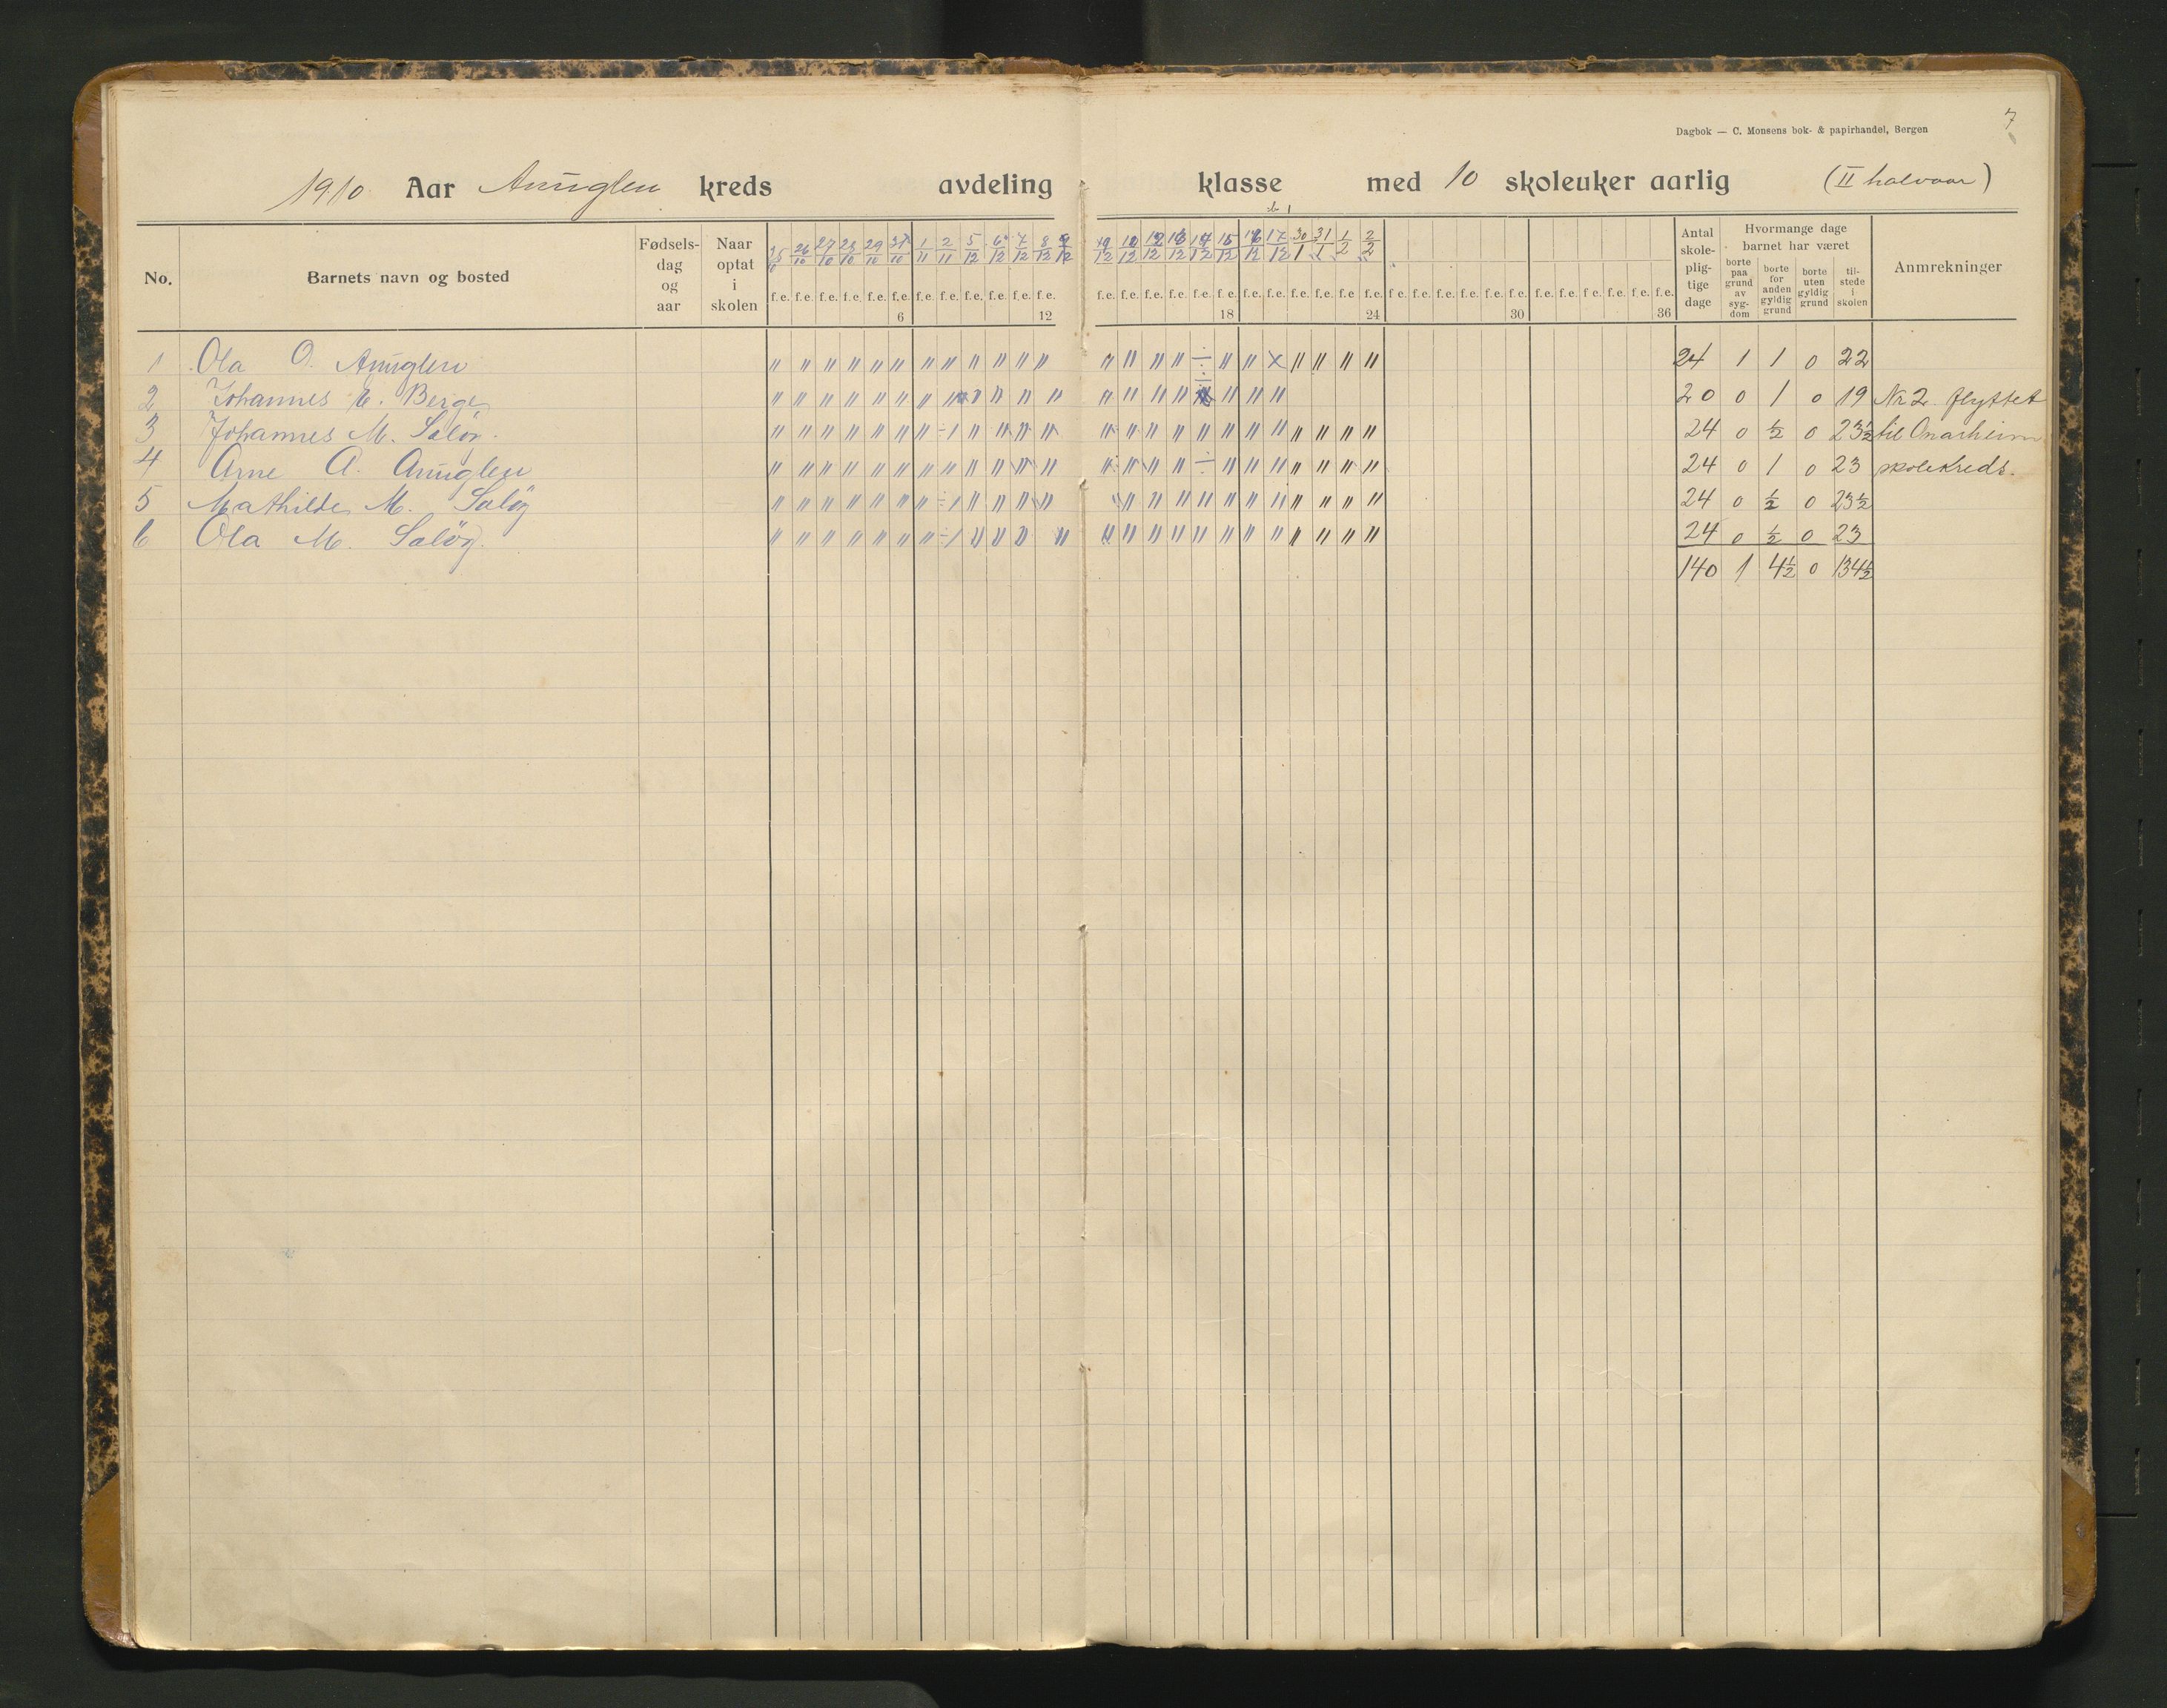 7
Dagbok — C. Monsens bok- & papirhandel, Bergen
1910 Aar Anuglen kreds avdeling klasse med 10 skoleuker aarlig (II halvaar)
No. Barnets navn og bosted Fødsels- dag og aar Naar optat i skolen
25/10 26/10 27/10 28/10 29/10 31/10 1/11 2/11 5/12 6/12 7/12 8/12 9/12
12/12 13/12 15/12 16/12 17/12 30/1 31/1 1/2 2/2
f.e. f.e. f.e. f.e. f.e. f.e. f.e. f.e. f.e. f.e. f.e. f.e. f.e. f.e. f.e. f.e. f.e. f.e. f.e. f.e. f.e. f.e. f.e. f.e. f.e. f.e. f.e. f.e. f.e. f.e. f.e. f.e. f.e. f.e. f.e. f.e.
6 12 18 24 30 36
Antal skole- plig- tige dage
Hvormange dage barnet har været
borte paa grund av syg- dom
borte for anden gyldig grund
borte uten gyldig grund
til- stede i skolen
Anmrekninger
1 Ola O. Anuglen 24 1 1 0 22
2 Johannes E. Berge 20 0 1 0 19 Nr 2. flyttet
3 Johannes M. Saløy. 24 0 ½ 0 23½ til Onarheim
4 Arne A. Anuglen 24 0 1 0 23 skolekreds.
5 Mathilde M. Saløy 24 0 ½ 0 23½
6 Ola M. Saløy. 24 0 ½ 0 23
140 1 4½ 0 134½